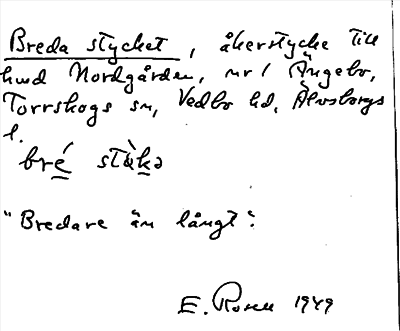 Breda stycket, åkerstycke till
hmd Nordgården, nr 1 Ängebo,
Torrskogs sn, Vedbo hd, Älvsborgs
l.
bré stàkə
"Bredare än långt".
E. Rosell 1949